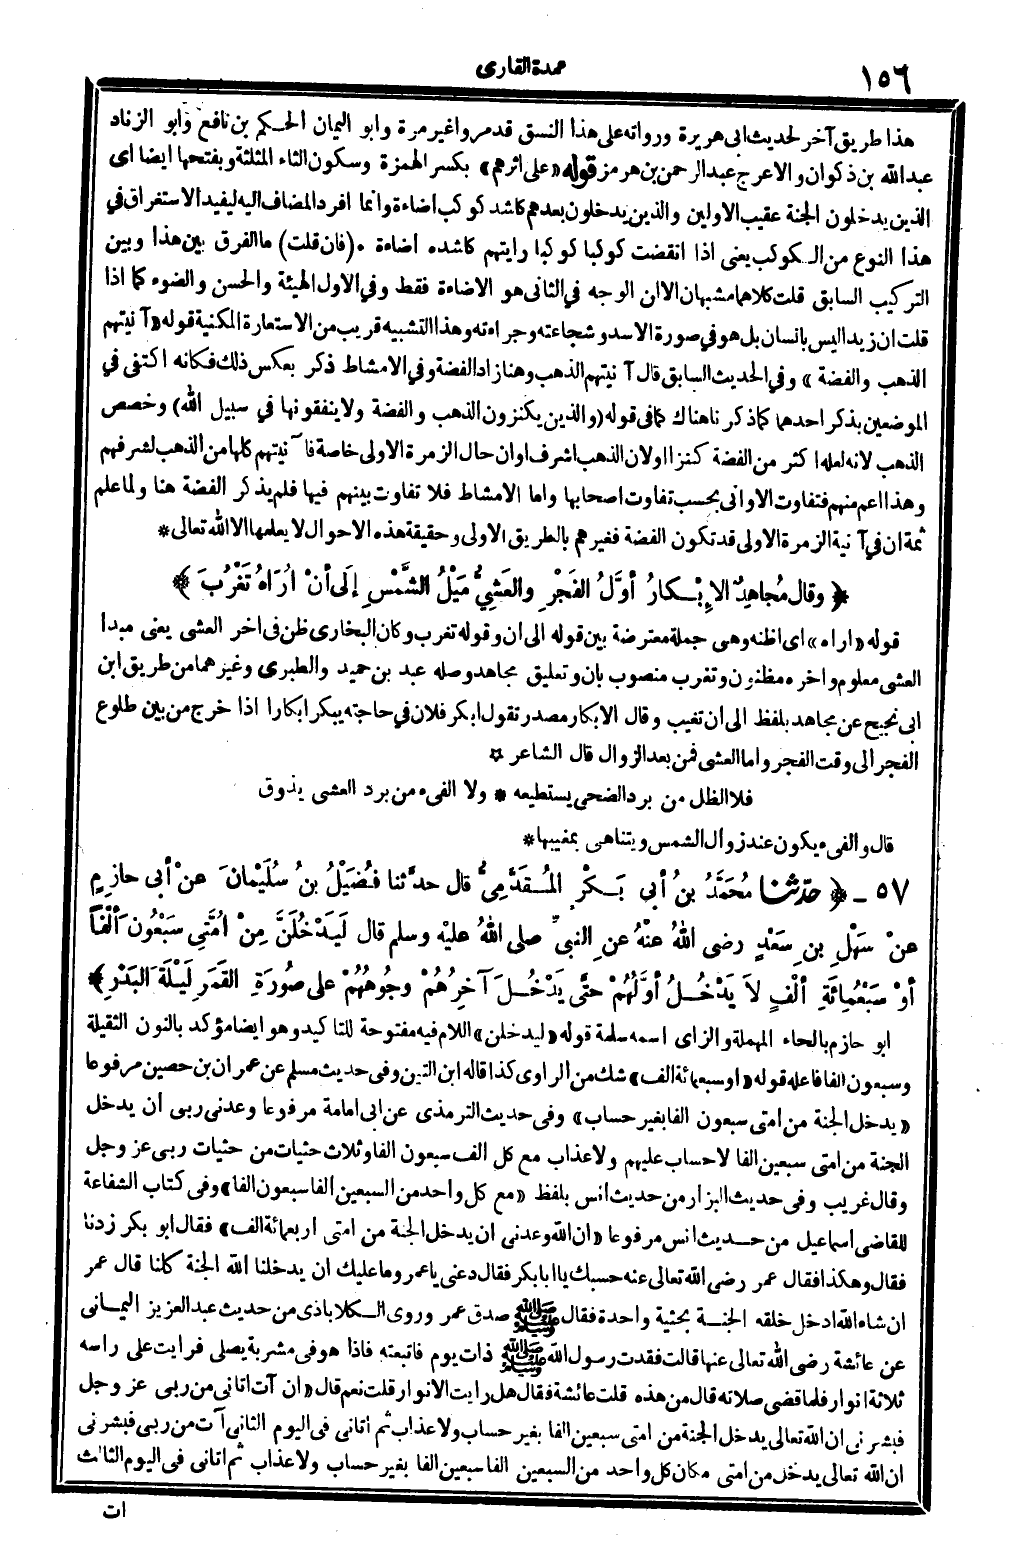 ١٥٦
عمدة القارى
هذا طريق آخر لحديث ابى هريرة ورواته على هذا النسق قد مروا غير مرة وابو اليمان الحكم بن نافع وابو الزناد
عبدالله بن ذكوان والاعرج عبدالرحمن بن هرمز قوله «على اثرهم» بكسر الهمزة وسكون الثاء المثلثة وبفتحها ايضا اى
الذين يدخلون الجنة عقيب الاولين والذين يدخلون بعدهم كاشد كوكب اضاءة وانما افرد المضاف اليه ليفيد الاستغراق في
هذا النوع من الكوكب يعنى اذا انقضت كوكبا كوكبا رايتهم كاشده اضاءة ٠ (فان قلت) ما الفرق بين هذا وبين
التركيب السابق قلت كلاهما مشبهان الا ان الوجه في الثانى هو الاضاءة فقط وفي الاول الهيئة والحسن والضوء كما اذا
قلت ان زيد اليس بانسان بل هو في صورة الاسد وشجاعته وجراءته وهذا التشبيه قريب من الاستعارة المكنية قوله «آنيتهم
الذهب والفضة» وفي الحديث السابق قال آنيتهم الذهب وهنا زاد الفضة وفي الامشاط ذكر بعكس ذلك فكانه اكتفى في
الموضعين بذكر احدهما كما ذكرناهناك كما في قوله (والذين يكنزون الذهب والفضة ولا ينفقونها في سبيل الله) وخصص
الذهب لانه لعله اكثر من الفضة كنزا اولان الذهب اشرف اوان حال الزمرة الاولى خاصة فآنيتهم كلها من الذهب لشرفهم
وهذا اعم منهم فتفاوت الاوانى بحسب تفاوت اصحابها واما الامشاط فلا تفاوت بينهم فيها فلم يذكر الفضة هنا ولما علم
ثمة ان في آنية الزمرة الاولى قد تكون الفضة فغيرهم بالطريق الاولى وحقيقة هذه الاحوال لا يعلمها الا الله تعالى *
﴿ وقال مُجاهِدٌ الإِبْكارُ أوَّلُ الفَجْرِ والعَشِيُّ مَيْلُ الشَّمْسِ إلَى أنْ أُرَاهُ تَغْرُبَ ﴾
قوله «اراه» اى اظنه وهى جملة معترضة بين قوله الى ان وقوله تغرب وكان البخارى ظن فى اخر العشى يعنى مبدا
العشى معلوم واخره مظنون وتغرب منصوب بان وتعليق مجاهد وصله عبد بن حميد والطبرى وغيرهما من طريق ابن
ابى نجيح عن مجاهد بلفظ الى ان تغيب وقال الابكار مصدر تقول ابكر فلان في حاجته يبكر ابكارا اذا خرج من بين طلوع
الفجر الى وقت الفجر واما العشى فمن بعد الزوال قال الشاعر ☆
فلا الظل من برد الضحى يستطيعه * ولا الفىء من برد العشى يذوق
قال والفىء يكون عند زوال الشمس ويتناهى بمغيبها *
٥٧ ـ ﴿ حدّثنا مُحَمَّدُ بنُ أبى بَكْرٍ المُقَدَّمِيُّ قال حدّثنا فُضَيْلُ بنُ سُلَيْمانَ عنْ أبى حازِمٍ
عنْ سَهْلِ بنِ سَعْدٍ رضى اللهُ عنْهُ عنِ النبىِّ صلى اللهُ عليْهِ وسلم قال لَيَدْخُلَنَّ مِنْ اُمَّتِى سَبْعُونَ ألْفًا
أوْ سَبْعُمِائَةِ ألْفٍ لاَ يَدْخُلُ أوَّلُهُمْ حتَّى يَدْخُلَ آخِرُهُمْ وجُوهُهُمْ على صُورَةِ القَمَرِ لَيْلَةَ البَدْرِ ﴾
ابو حازم بالحاء المهملة والزاى اسمه سلمة قوله «ليدخلن» اللام فيه مفتوحة للتاكيد وهو ايضا مؤكد بالنون الثقيلة
وسبعون الفا فاعله قوله «او سبعمائة الف» شك من الراوى كذا قاله ابن التين وفى حديث مسلم عن عمران بن حصين مرفوعا
«يدخل الجنة من امتى سبعون الفا بغير حساب» وفى حديث الترمذى عن ابى امامة مرفوعا وعدنى ربى أن يدخل
الجنة من امتى سبعين الفا لا حساب عليهم ولا عذاب مع كل الف سبعون الفا وثلاث حثيات من حثيات ربى عز وجل
وقال غريب وفى حديث البزار من حديث انس بلفظ «مع كل واحد من السبعين الفا سبعون الفا» وفى كتاب الشفاعة
للقاضى اسماعيل من حديث انس مرفوعا «ان الله وعدنى ان يدخل الجنة من امتى اربعمائة الف» فقال ابو بكر زدنا
فقال وهكذا فقال عمر رضى الله تعالى عنه حسبك يا ابا بكر فقال دعنى ياعمر وما عليك ان يدخلنا الله الجنة كلنا قال عمر
ان شاء الله ادخل خلقه الجنة بحثية واحدة فقال ﷺ صدق عمر وروى الكلاباذى من حديث عبدالعزيز اليمانى
عن عائشة رضى الله تعالى عنها قالت فقدت رسول الله ﷺ ذات يوم فاتبعته فاذا هو فى مشربة يصلى فرايت على راسه
ثلاثة انوار فلما قضى صلاته قال من هذه قلت عائشة فقال هل رايت الانوار قلت نعم قال «ان آت اتانى من ربى عز وجل
فبشرنى ان الله تعالى يدخل الجنة من امتى سبعين الفا بغير حساب ولا عذاب ثم اتانى فى اليوم الثانى آت من ربى فبشرنى
ان الله تعالى يدخل من امتى مكان كل واحد من السبعين الفا سبعين الفا بغير حساب ولا عذاب ثم اتانى فى اليوم الثالث
ات